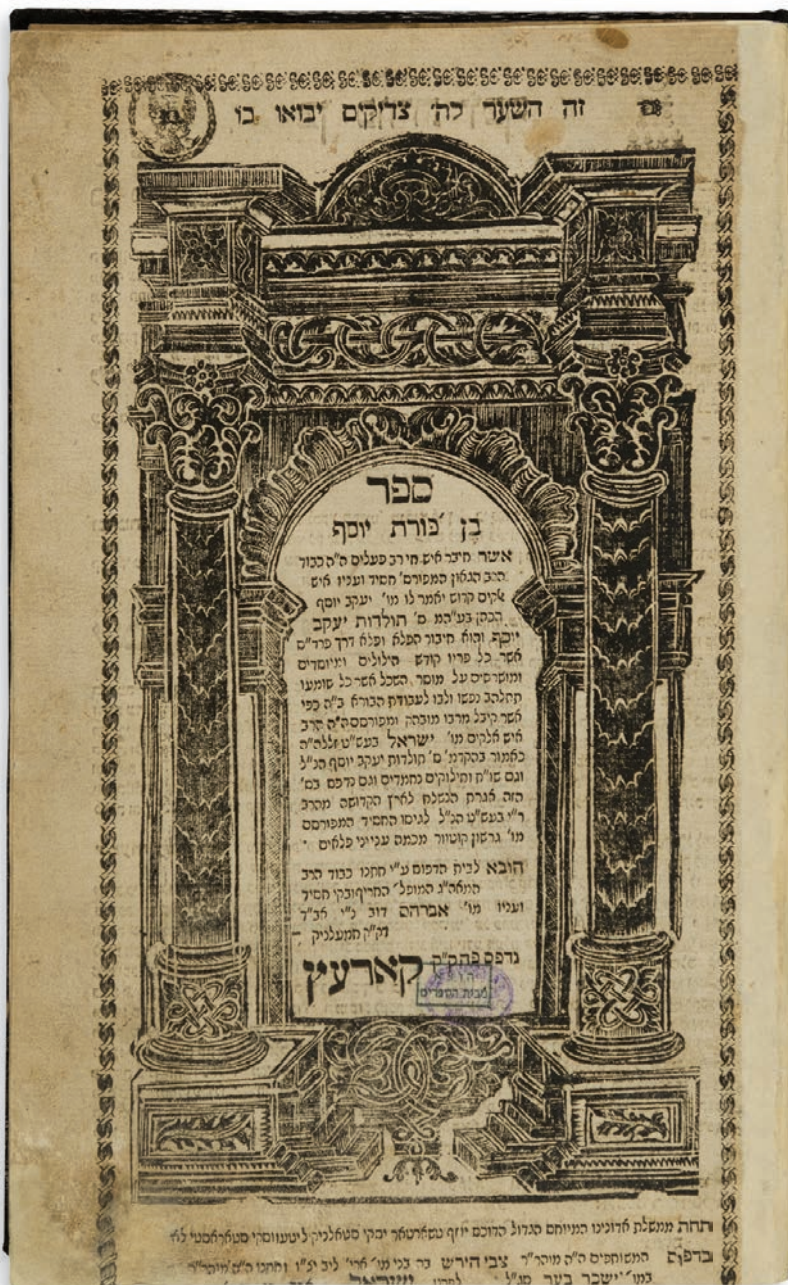 זה השער לה׳ צדיקים יבואו בו
ספר
בן פורת יוסף
אשר חיבר איש חי רב פעלים ה״ה כבוד
הרב הגאון המפורס׳ חסיד ועניו איש
אלקים קדוש יאמר לו מו׳ יעקב יוסף
הכהן בע״המ ס׳ תולדות יעקב
יוסף והוא חיבור הפלא ופלא דרך פרד״ס
אשר כל פריו קודש הילולים ומיוסדים
ומושרשים על מוסר השכל אשר כל שומעו
תתלהב נפשו ולבו לעבודת הבורא ב״ה כפי
אשר קיבל מרבו מובהק ומפורסם ה״ה הרב
איש אלקים מו׳ ישראל בעש״ט זללה״ה
כאמור בהקדמ׳ ס׳ תולדות יעקב יוסף הנ״ל
וגם שו״ת וחילוקים נחמדים וגם נדפס בס׳
הזה אגרת הנשלח לארץ הקדושה מהרב
ר״י בעש״ט הנ״ל לגיסו החסיד המפורסם
מו׳ גרשון קוטוור מכמה ענייני פלאים
הובא לבית הדפוס ע״י חתנו כבוד הרב
המאה״ג המופל׳ החריף ובקי חסיד
ועניו מו׳ אברהם דוב נ״י אב״ד
דק״ק חמעלניק
נדפס פה ק״ק קארעץ
מבית הספרים
תחת ממשלת אדונינו המיוחס הגדול הדוכס יוזף טשארטאריסקי סטאלניק ליטעווסקי סטאראסטי לא
בדפוס המשותפים ה״ה מוהר״ר צבי הירש בר בני מו׳ ארי׳ ליב יצ״ו וחתנו ה״ה מוהר״ר
במו׳ ישכר בער סג״ל